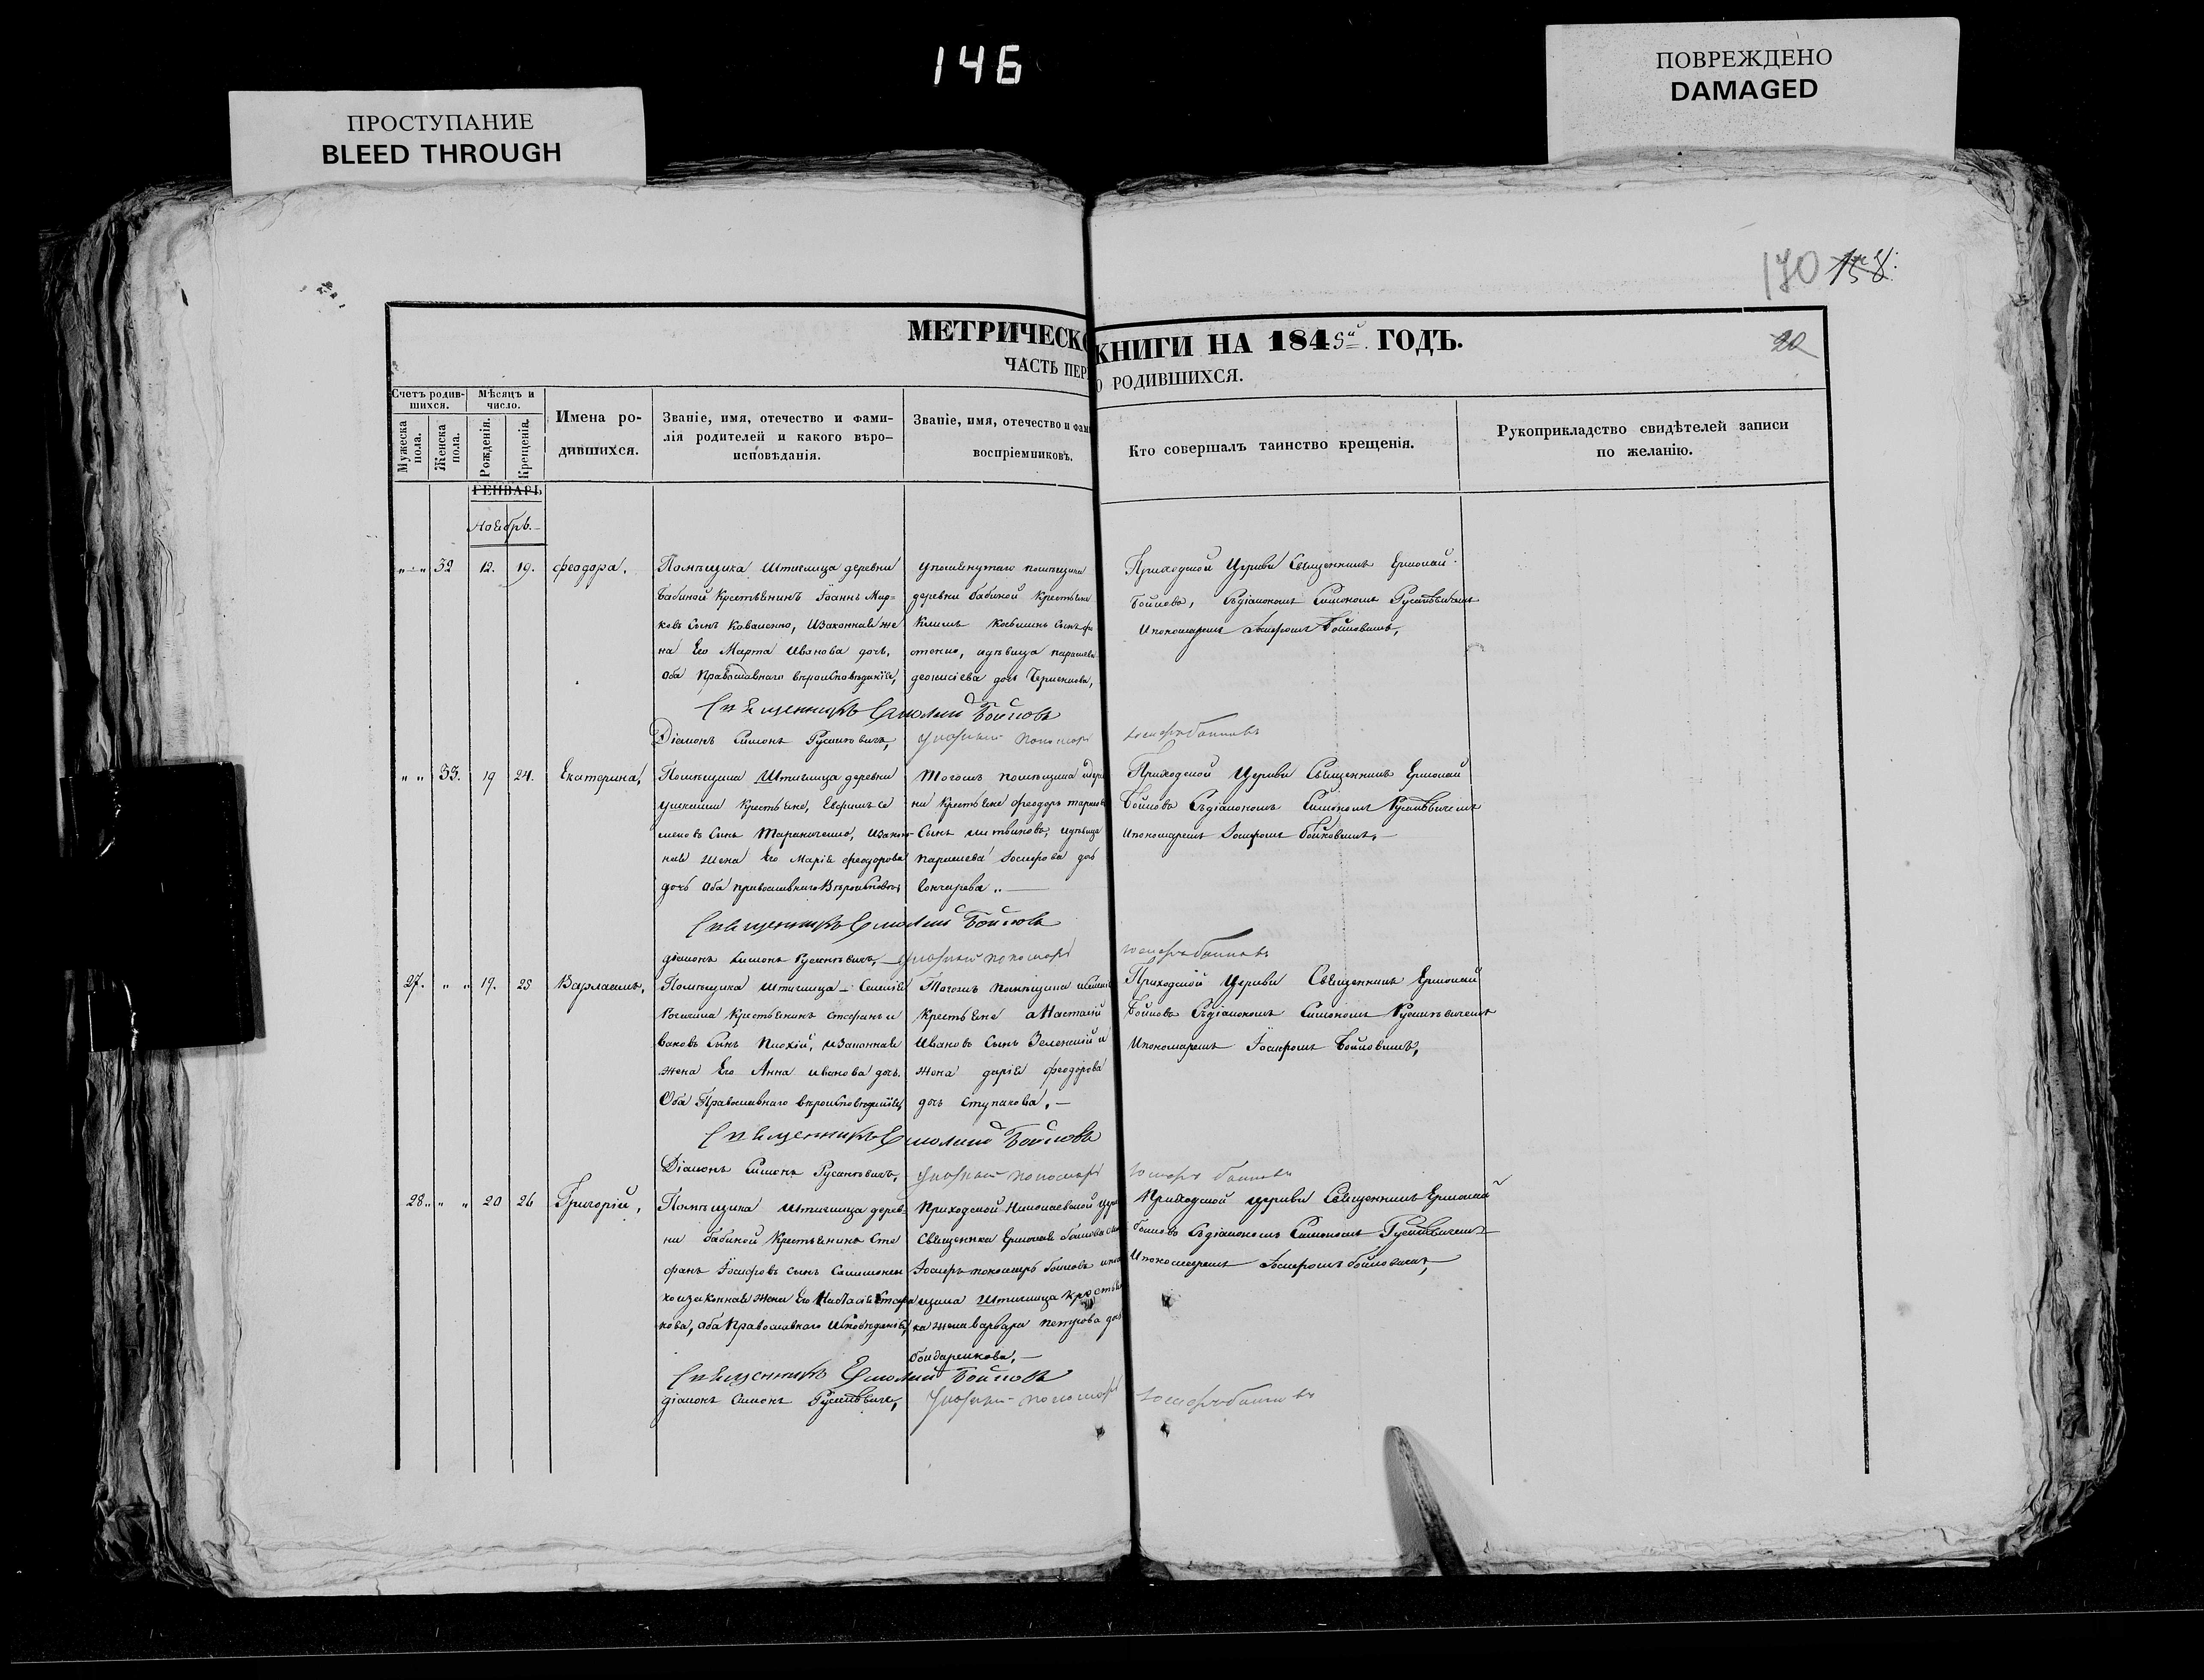 146
ПРОСТУПАНИЕ
BLEED THROUGH
ПОВРЕЖДЕНО
DAMAGED
170 158.
20
МЕТРИЧЕСКО КНИГИ НА 1845й ГОДЪ.
ЧАСТЬ ПЕР О РОДИВШИХСЯ.
Счетъ родив-
шихся.
Мужеска пола.
Женска пола.
Мѣсяцъ и
число.
Рожденія.
Крещенія.
Имена ро-
дившихся.
Званіе, имя, отечество и фами-
лія родителей и какого вѣро-
исповѣданія.
Званіе, имя, отечество и фам
воспріемниковъ.
Кто совершалъ таинство крещенія.
Рукоприкладство свидѣтелей записи
по желанію.
ГЕНВАРЬ
Ноябрь.
" " 32 12. 19. Феодора.
Помѣщика Штиглица деревни
Бабиной Крестьянинъ Іоаннъ Мар=
ковъ Сынъ Коваленко, Изаконная же
на Его Марта Иванова дочь,
Оба Православнаго вѣроисповѣданія,
упомянутаго помѣщика
деревни Бабиной Крестьяне
Климъ Козьминъ Сынъ
идѣвица
дочь
Приходской Церкви Священникъ Ермолай
Бойковъ, Съдіакономъ Симономъ Русановичемъ
Ипономаремъ Іосифомъ Бойковымъ,
Священникъ Ермолай Бойковъ
Діаконъ Симонъ Русановичъ,
пономарь
" " 33. 19 24. Екатерина,
Помѣщика Штиглица деревни
Крестьяне, Ефимъ Се
меновъ Сынъ Тараниченко, Изакон
ная жена Его Марія Феодорова
дочь Оба православнаго Вѣроисповѣд
Тогожъ помѣщика идере
ни Крестьяне Феодоръ
Сынъ Литвиновъ, идѣвица
Параскева Іосифова дочь
Гончарева..
Приходской Церкви Священникъ Ермолай
Бойковъ Съдіакономъ Симономъ Русановичемъ
Ипономаремъ Іосифомъ Бойковымъ.
Священникъ Ермолай Бойковъ
діаконъ Симонъ Русановичъ,
пономарь
27. " " 19. 25 Варлаамъ,
Помѣщика Штиглица
Крестьянинъ Стефанъ И
вановъ Сынъ Плохій, Изаконная
жена Его Анна Иванова дочь.
Оба Православнаго вѣроисповѣданія,
Тогожъ помѣщика
Крестьяне Анастасій
Ивановъ Сынъ Зеленскій и
жена дарія Феодорова
дочь Ступакова,
Приходской Церкви Священникъ Ермолай
Бойковъ Съдіакономъ Симономъ Русановичемъ
Ипономаремъ Іосифомъ Бойковымъ,
Священникъ Ермолай Бойковъ
Діаконъ Симонъ Русановичъ,
пономарь
28. " " 20 26 Григорій,
Помѣщика Штиглица дерев-
ни бабиной Крестьянинъ Сте
фанъ Іосифовъ сынъ
изаконная жена Его Настасія Стефа
нова, Оба Православнаго Исповѣданія,
Приходской Николаевской Церк
Священника Ермолая Бойкова сынъ
Іосифъ пономарь Бойковъ
щика Штиглица Крестьян
ка жена варвара петрова дочь
Бондаренкова,
Приходской церкви Священникъ Ермолай
Бойковъ Съдіакономъ Симономъ Русановичемъ
Ипономаремъ Іосифомъ Бойковымъ,
Священникъ Ермолай Бойковъ
діаконъ Симонъ Русановичъ,
пономарь